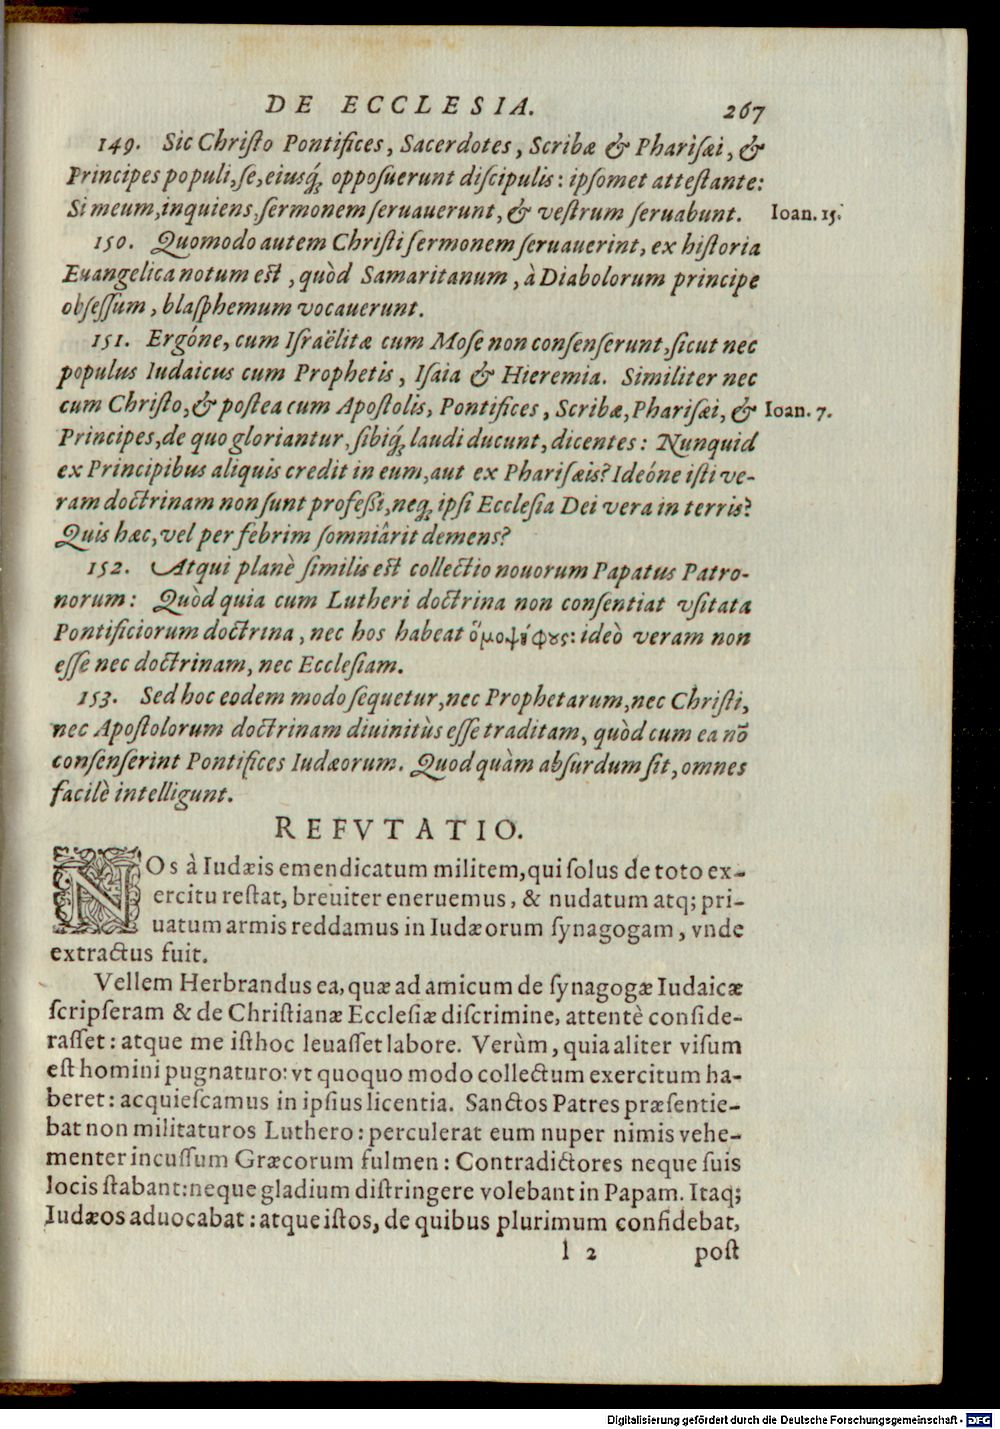 DE ECCLESIA. 267
149. Sic Christo Pontifices, Sacerdotes, Scribæ & Pharisæi, &
Principes populi, se, eiusq́; opposuerunt discipulis: ipsomet attestante:
Si meum, inquiens, sermonem seruauerunt, & vestrum seruabunt. Ioan. 15.
150. Quomodo autem Christi sermonem seruauerint, ex historia
Euangelica notum est, quòd Samaritanum, à Diabolorum principe
obsessum, blasphemum vocauerunt.
151. Ergóne, cum Israëlitæ cum Mose non consenserunt, sicut nec
populus Iudaicus cum Prophetis, Isaia & Hieremia. Similiter nec
cum Christo, & postea cum Apostolis, Pontifices, Scribæ, Pharisæi, & Ioan. 7.
Principes, de quo gloriantur, sibiq́; laudi ducunt, dicentes: Nunquid
ex Principibus aliquis credit in eum, aut ex Pharisæis? Ideóne isti ve-
ram doctrinam non sunt professi, neq́; ipsi Ecclesia Dei vera in terris?
Quis hæc, vel per febrim somniârit demens?
152. Atqui planè similis est collectio nouorum Papatus Patro-
norum: Quòd quia cum Lutheri doctrina non consentiat vsitata
Pontificiorum doctrina, nec hos habeat ὁμοψήφους: ideò veram non
esse nec doctrinam, nec Ecclesiam.
153. Sed hoc eodem modo sequetur, nec Prophetarum, nec Christi,
nec Apostolorum doctrinam diuinitùs esse traditam, quòd cum ea nō
consenserint Pontifices Iudæorum. Quod quàm absurdum sit, omnes
facilè intelligunt.
REFVTATIO.
NOs à Iudæis emendicatum militem, qui solus de toto ex-
ercitu restat, breuiter eneruemus, & nudatum atq; pri-
uatum armis reddamus in Iudæorum synagogam, vnde
extractus fuit.
Vellem Herbrandus ea, quæ ad amicum de synagogæ Iudaicæ
scripseram & de Christianæ Ecclesiæ discrimine, attentè conside-
rasset: atque me isthoc leuasset labore. Verùm, quia aliter visum
est homini pugnaturo: vt quoquo modo collectum exercitum ha-
beret: acquiescamus in ipsius licentia. Sanctos Patres præsentie-
bat non militaturos Luthero: perculerat eum nuper nimis vehe-
menter incussum Græcorum fulmen: Contradictores neque suis
locis stabant: neque gladium distringere volebant in Papam. Itaq;
Iudæos aduocabat: atque istos, de quibus plurimum confidebat,
l 2 post
Digitalisierung gefördert durch die Deutsche Forschungsgemeinschaft - DFG